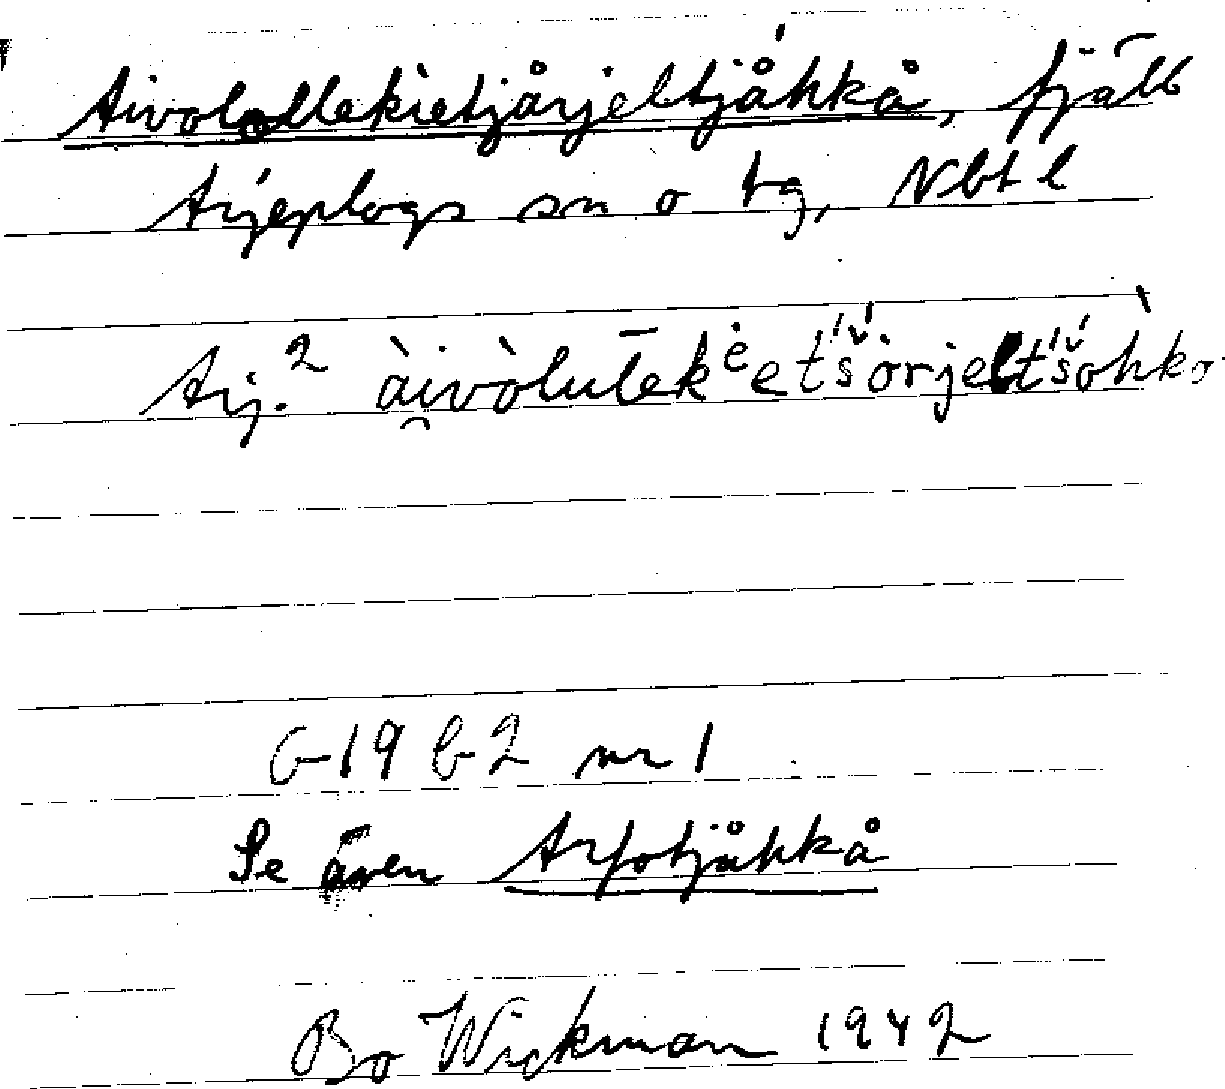 Aivolollekietjårjeltjåhkå, fjäll
Arjeplogs sn o tg, Nbt l
Arj.² ài̯vòlulēkėetšòrjeltšohko
G 19 b 2 nr 1
Se även Arfotjåhkå
Bo Wickman 1942